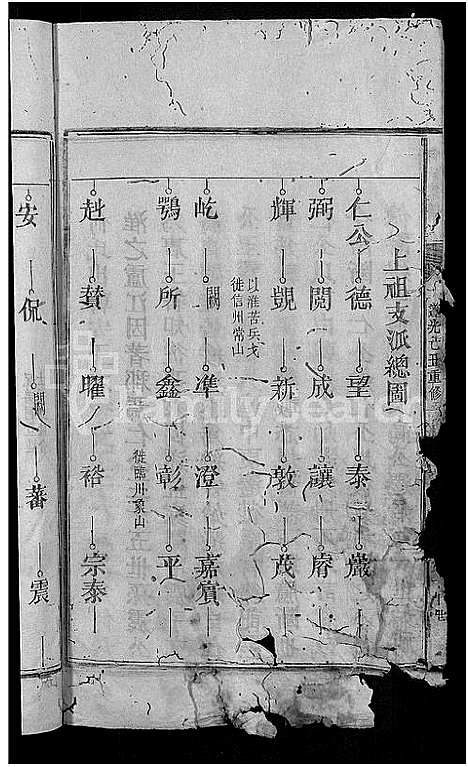 上祖支派總圖
仁公 德 望 泰 嚴
弼 閱 成 讓 膺
輝 覬 新 敦 茂
以淮苦兵戈
徙信州常山
屹 闕 準 澄 嘉賓
鶚 所 鑫 彰 平
徙臨川象山
赳 賛 曜 裕 宗泰
安 侃 闕 蕃 震
重修
FamilySearch